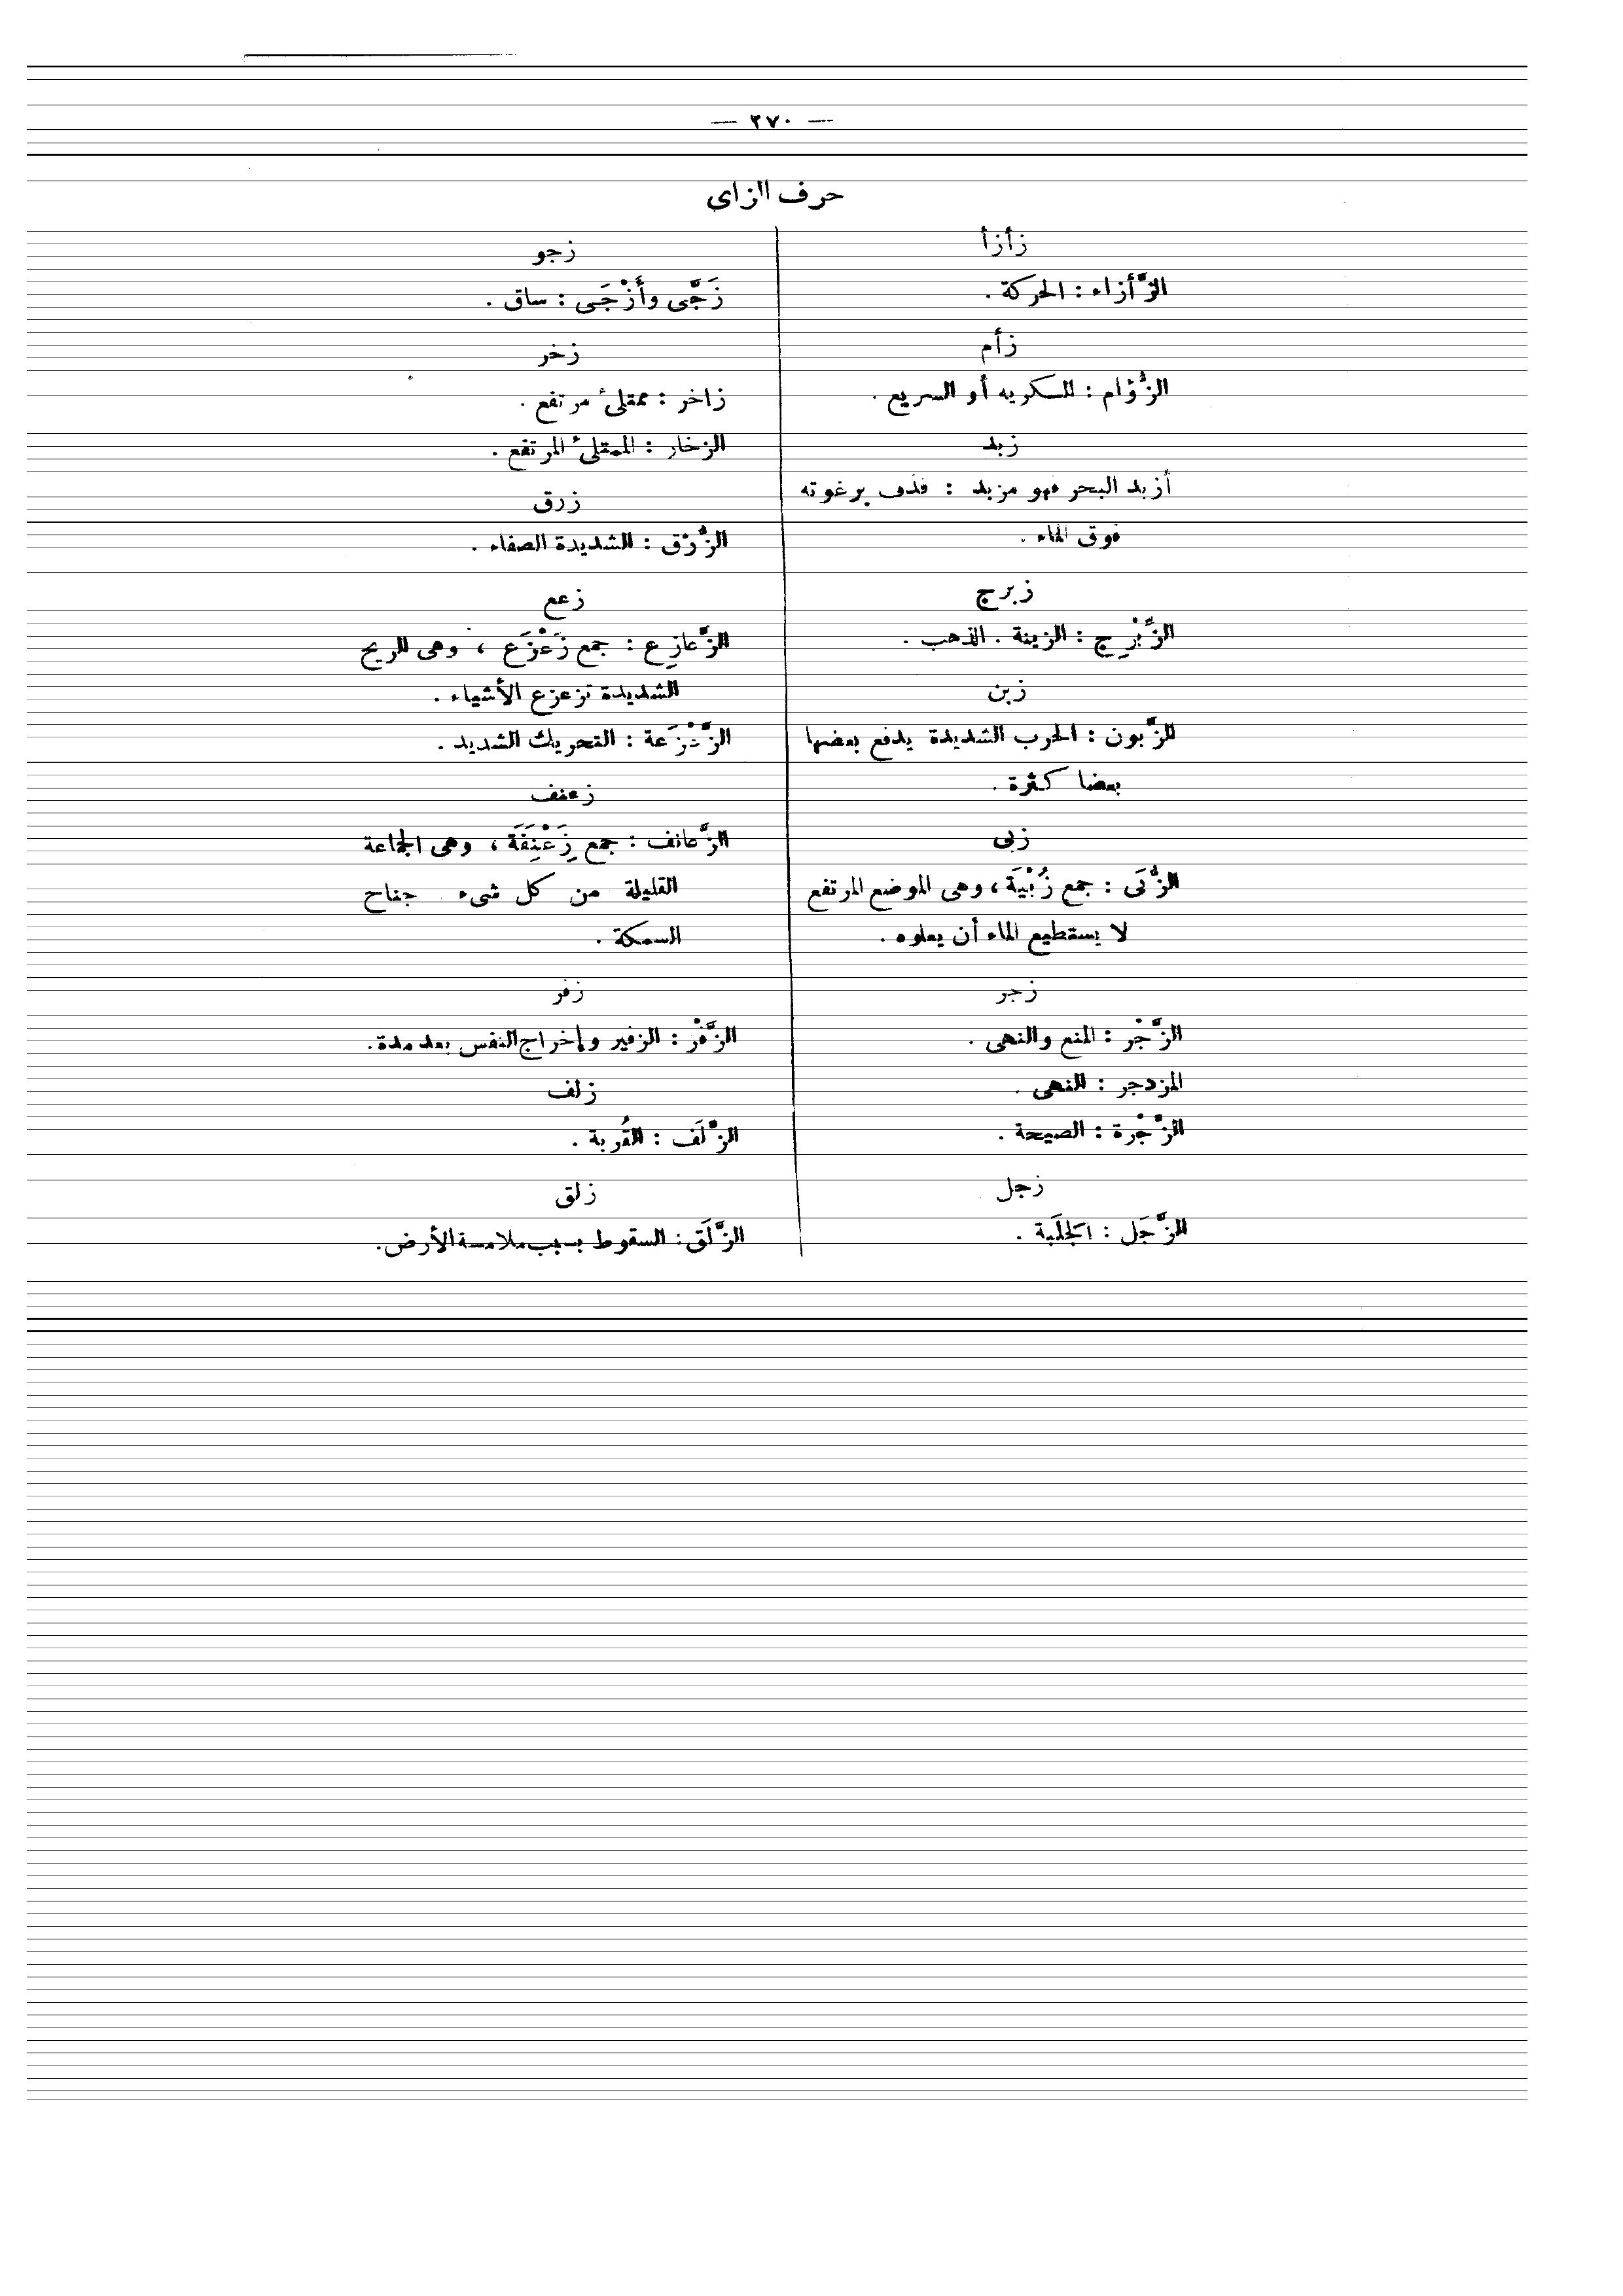 — ٢٧٠ —
حرف الزاى
زأزأ
الزَّأزاء : الحركة .
زأم
الزُّؤَام : الكريه أو السريع .
زبد
أزبد البحر فهو مزبد : قذف برغوته
فوق الماء .
زبرج
الزِّبْرِج : الزينة . الذهب .
زبن
الزَّبون : الحرب الشديدة يدفع بعضها
بعضا كثرة .
زبى
الزُّبَى : جمع زُبْيَة ، وهى الموضع المرتفع
لا يستطيع الماء أن يعلوه .
زجر
الزَّجْر : المنع والنهى .
المزدجر : النهى .
الزَّجْرة : الصيحة .
زجل
الزَّجَل : الجَلَبة .
زجو
زَجَّى وأَزْجَى : ساق .
زخر
زاخر : ممتلئ مرتفع .
الزخار : الممتلئ المرتفع .
زرق
الزُّرْق : الشديدة الصفاء .
زعع
الزَّعازِع : جمع زَعْزَع ، وهى الريح
الشديدة تزعزع الأشياء .
الزَّعْزَعة : التحريك الشديد .
زعنف
الزَّعانف : جمع زِعْنِفَة ، وهى الجماعة
القليلة من كل شىء . جناح
السمكة .
زفر
الزَّفْر : الزفير وإخراج النفس بعد مدة.
زلف
الزَّلَف : القُربة .
زلق
الزَّلَق : السقوط بسبب ملامسة الأرض.